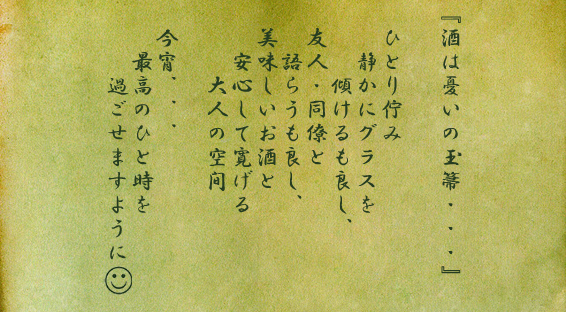 『酒は憂いの玉箒・・・』
ひとり佇み
静かにグラスを
傾けるも良し、
友人・同僚と
語らうも良し、
美味しいお酒と
安心して寛げる
大人の空間
今宵・・・
最高のひと時を
過ごせますように☺